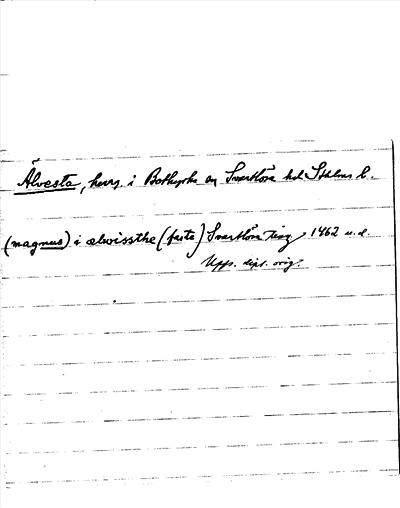 Älvesta, herrg. i Botkyrka sn Svartlösa hd Sthlms l.
(magnus) i ælwissthe (faste) Svartlösa ting 1462 u.d.
Upps. dipl. orig.